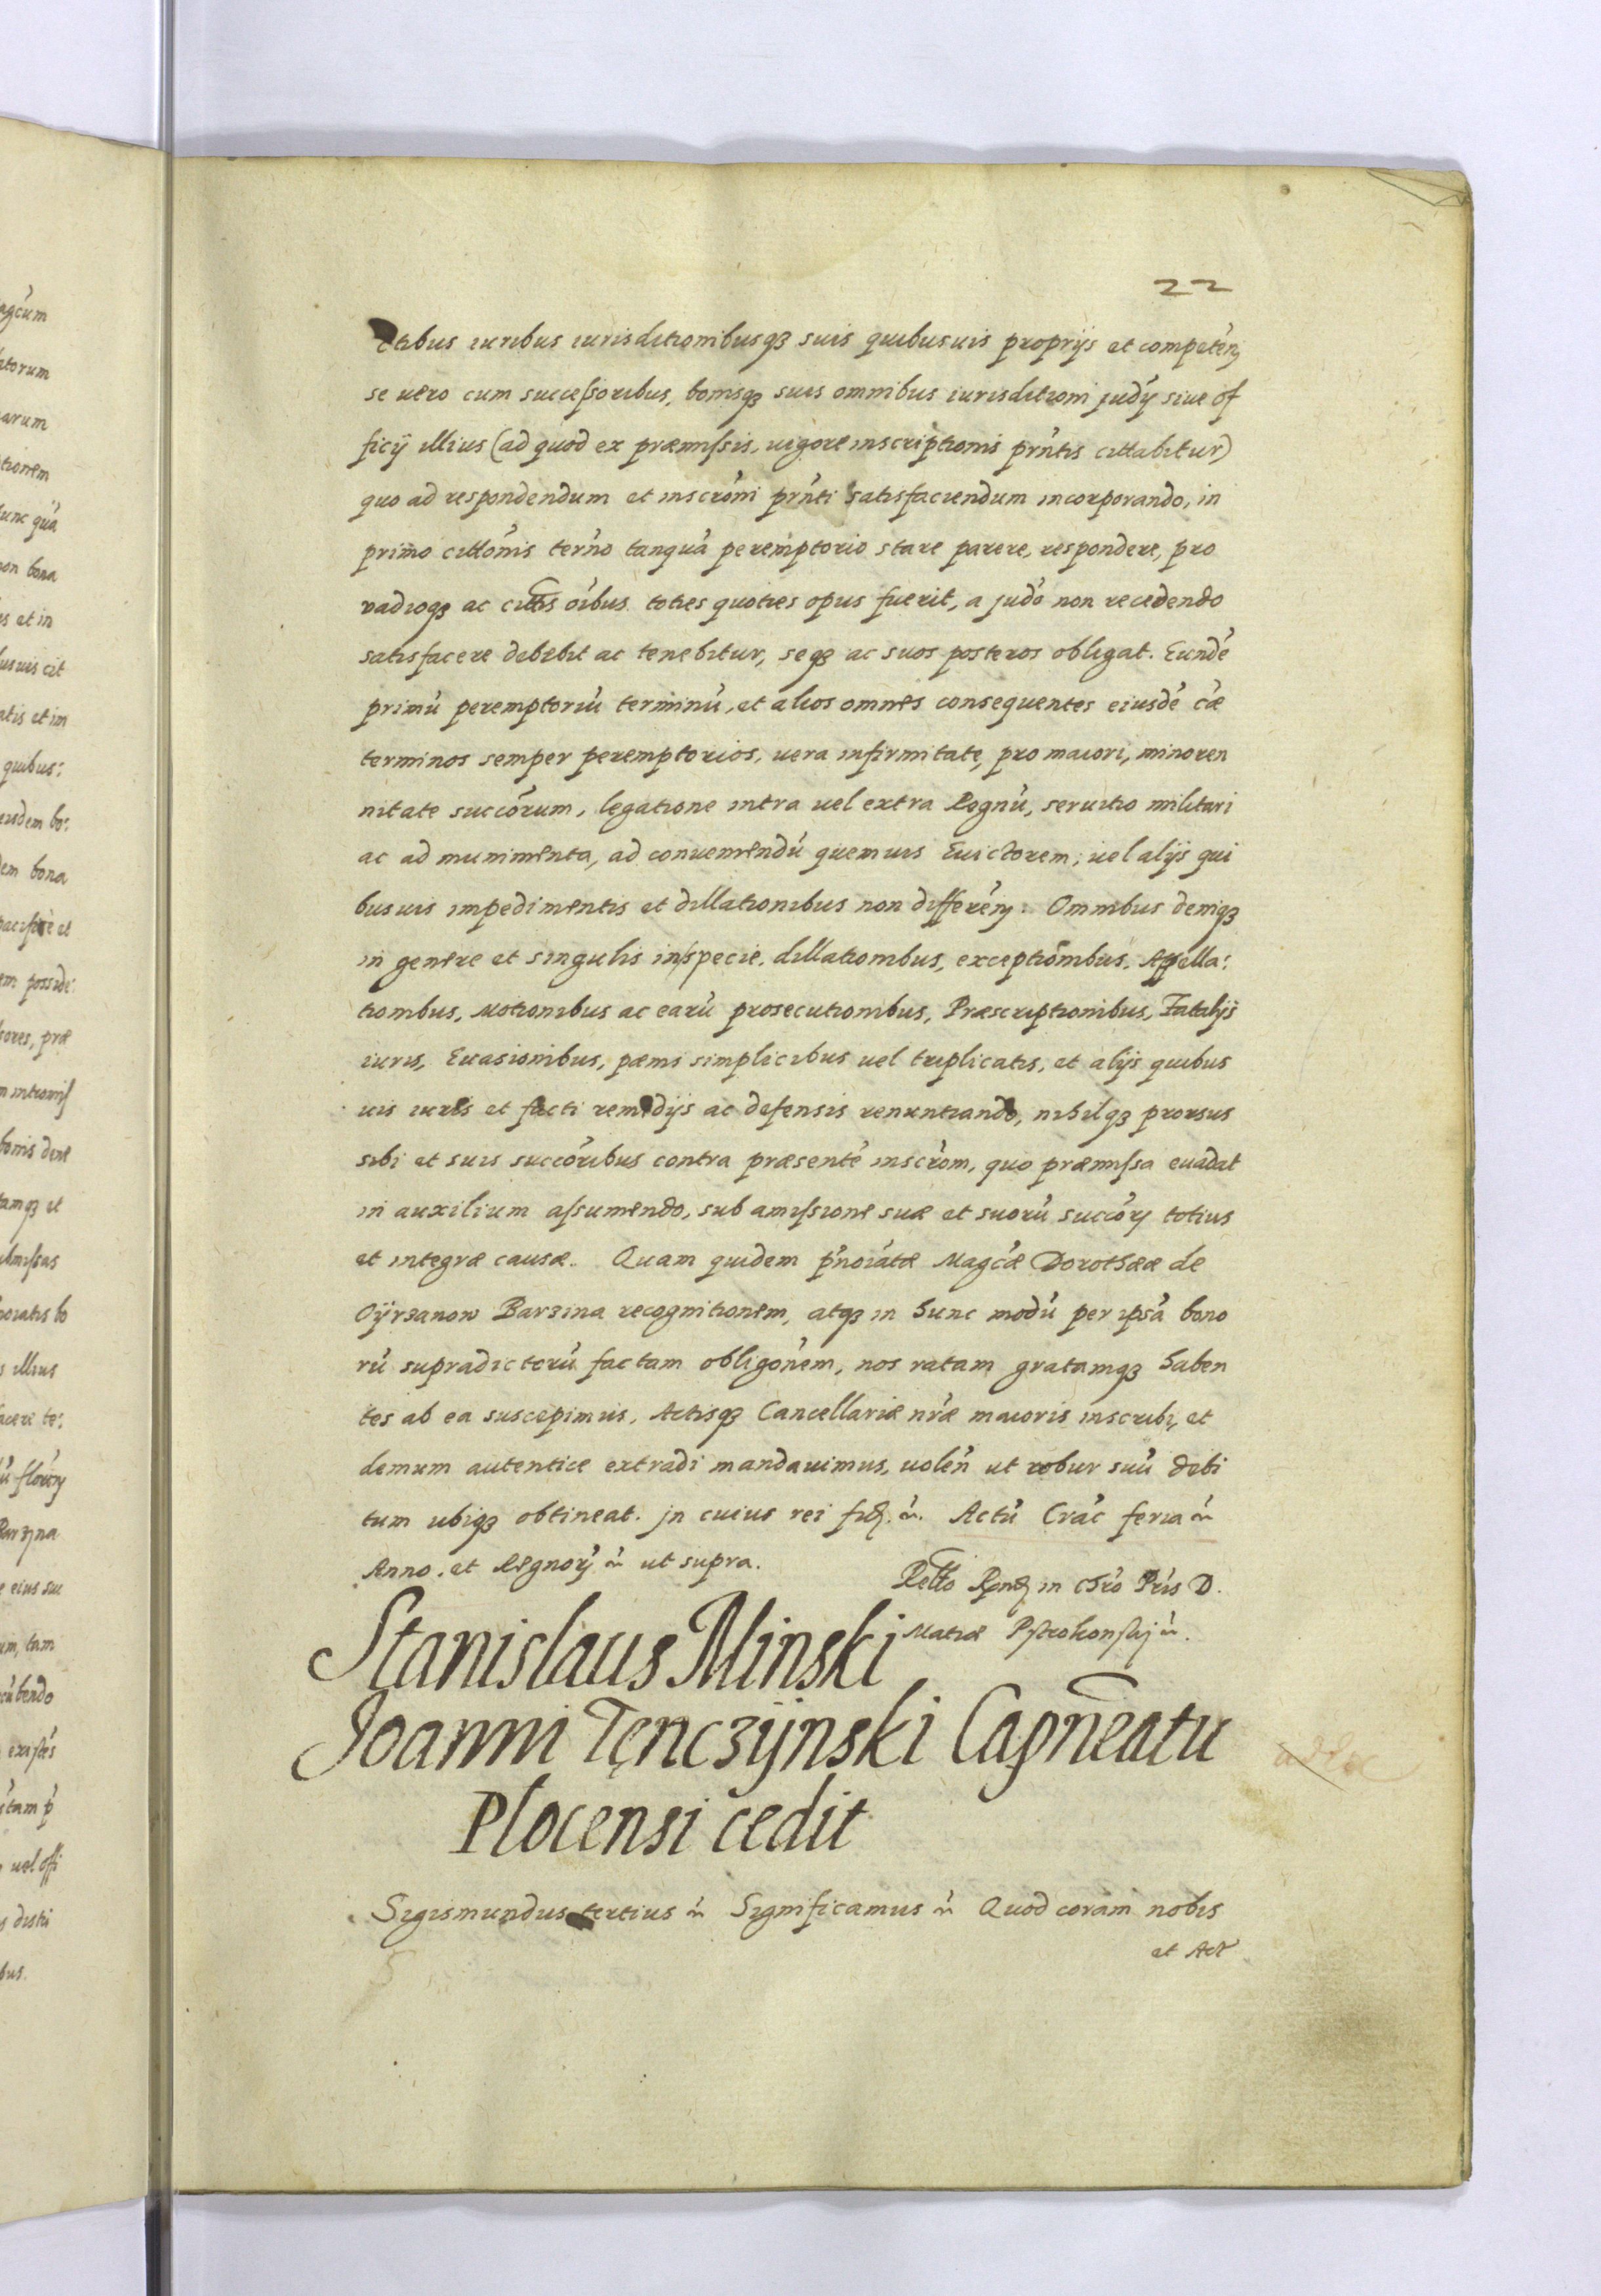 22
ctibus iuribus iurisditionibusqȝ suis quibusuis proprijs et competen̄
se uero cum successoribus, bonisqȝ suis omnibus iurisditioni judij siue of
ficij illius (ad quod ex præmissis, uigore inscriptionis prn̄tis cittabitur)
quo ad respondendum et inscrōni prn̄ti satisfaciendum incorporando, in
primo cittōnis terno tanquā peremptorio stare parere, respondere, pro
vadioqȝ ac cittis oībus toties quoties opus fuerit, a judo non recedendo
satisfacere debebit ac tenebitur, seqȝ ac suos posteros obligat. Eundē
primū peremptoriū terminū, et alios omnes consequentes eiusdē cæ
terminos semper peremptorios, uera infirmitate, pro maiori, minoren
nitate succōrum, legatione intra uel extra Regnū, seruitio militari
ac ad munimenta, ad conueniendū quemuis Euictorem, uel alijs qui
busuis impedimentis et dillationibus non differen̄. Omnibus deniqȝ
in genere et singulis in specie, dillationibus, exceptiōnibus, Appella:
tionibus, Motionibus ac earū prosecutionibus, Præscriptionibus, Fatalijs
iuris, Euasionibus, pæmi simplicibus uel triplicatis, et alijs quibus
uis iuris et facti remedijs ac defensis renuntiando, nihilqȝ prorsus
sibi et suis succōribus contra præsentē inscrōm, quo præmissa euadat
in auxilium assumendo, sub amissione suæ et suorū succōrȝ totius
et integræ causæ. Quam quidem pn̄oiatæ Magcæ Dorotheæ de
Oijrzanow Barzina recognitionem, atqȝ in hunc modū per ipsā bono
rū supradictorū factam obligōnem, nos ratam gratamqȝ haben
tes ab ea suscepimus, Actisqȝ Cancellariæ nr̄æ maioris inscribi, et
demum autentice extradi mandauimus, uolen̄ ut robur suū debi
tum ubiqȝ obtineat. Jn cuius rei fid. &. Actū Crac̄ feria &
Anno, et Regnorȝ & ut supra.
Retto Rend in Chrō Pris D.
Matiæ Pstrokonskij &.
Stanislaus Minski
Joanni Tęnczijnski Capneatu
Plocensi cedit
Sigismundus tertius & Significamus & Quod coram nobis
et Act